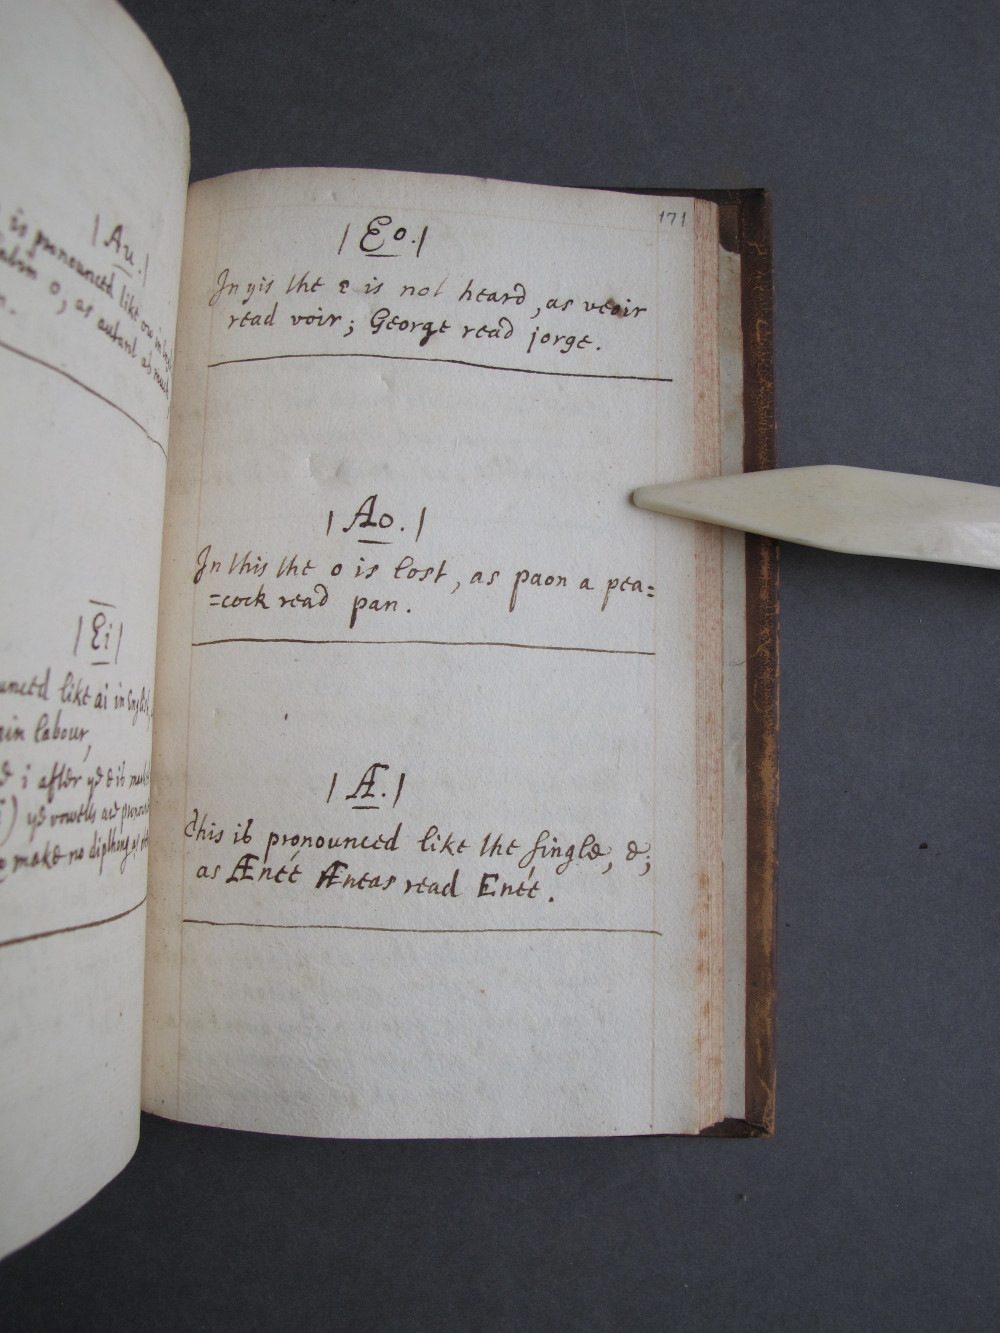 | Au. |
is pronounced like ow in
o, as autant as much,
| Ei |
like ai in English,
in labour,
i after ye e is
) ye vowells are
make no dipthong as
171
| Eo. |
In yis the e is not heard, as veoir
read voir; George read jorge.
| Ao. |
In this the o is lost, as paon a pea=
=cock read pan.
| Æ. |
this is pronounced like the single, e;
as Æneé Æneas read Eneé.